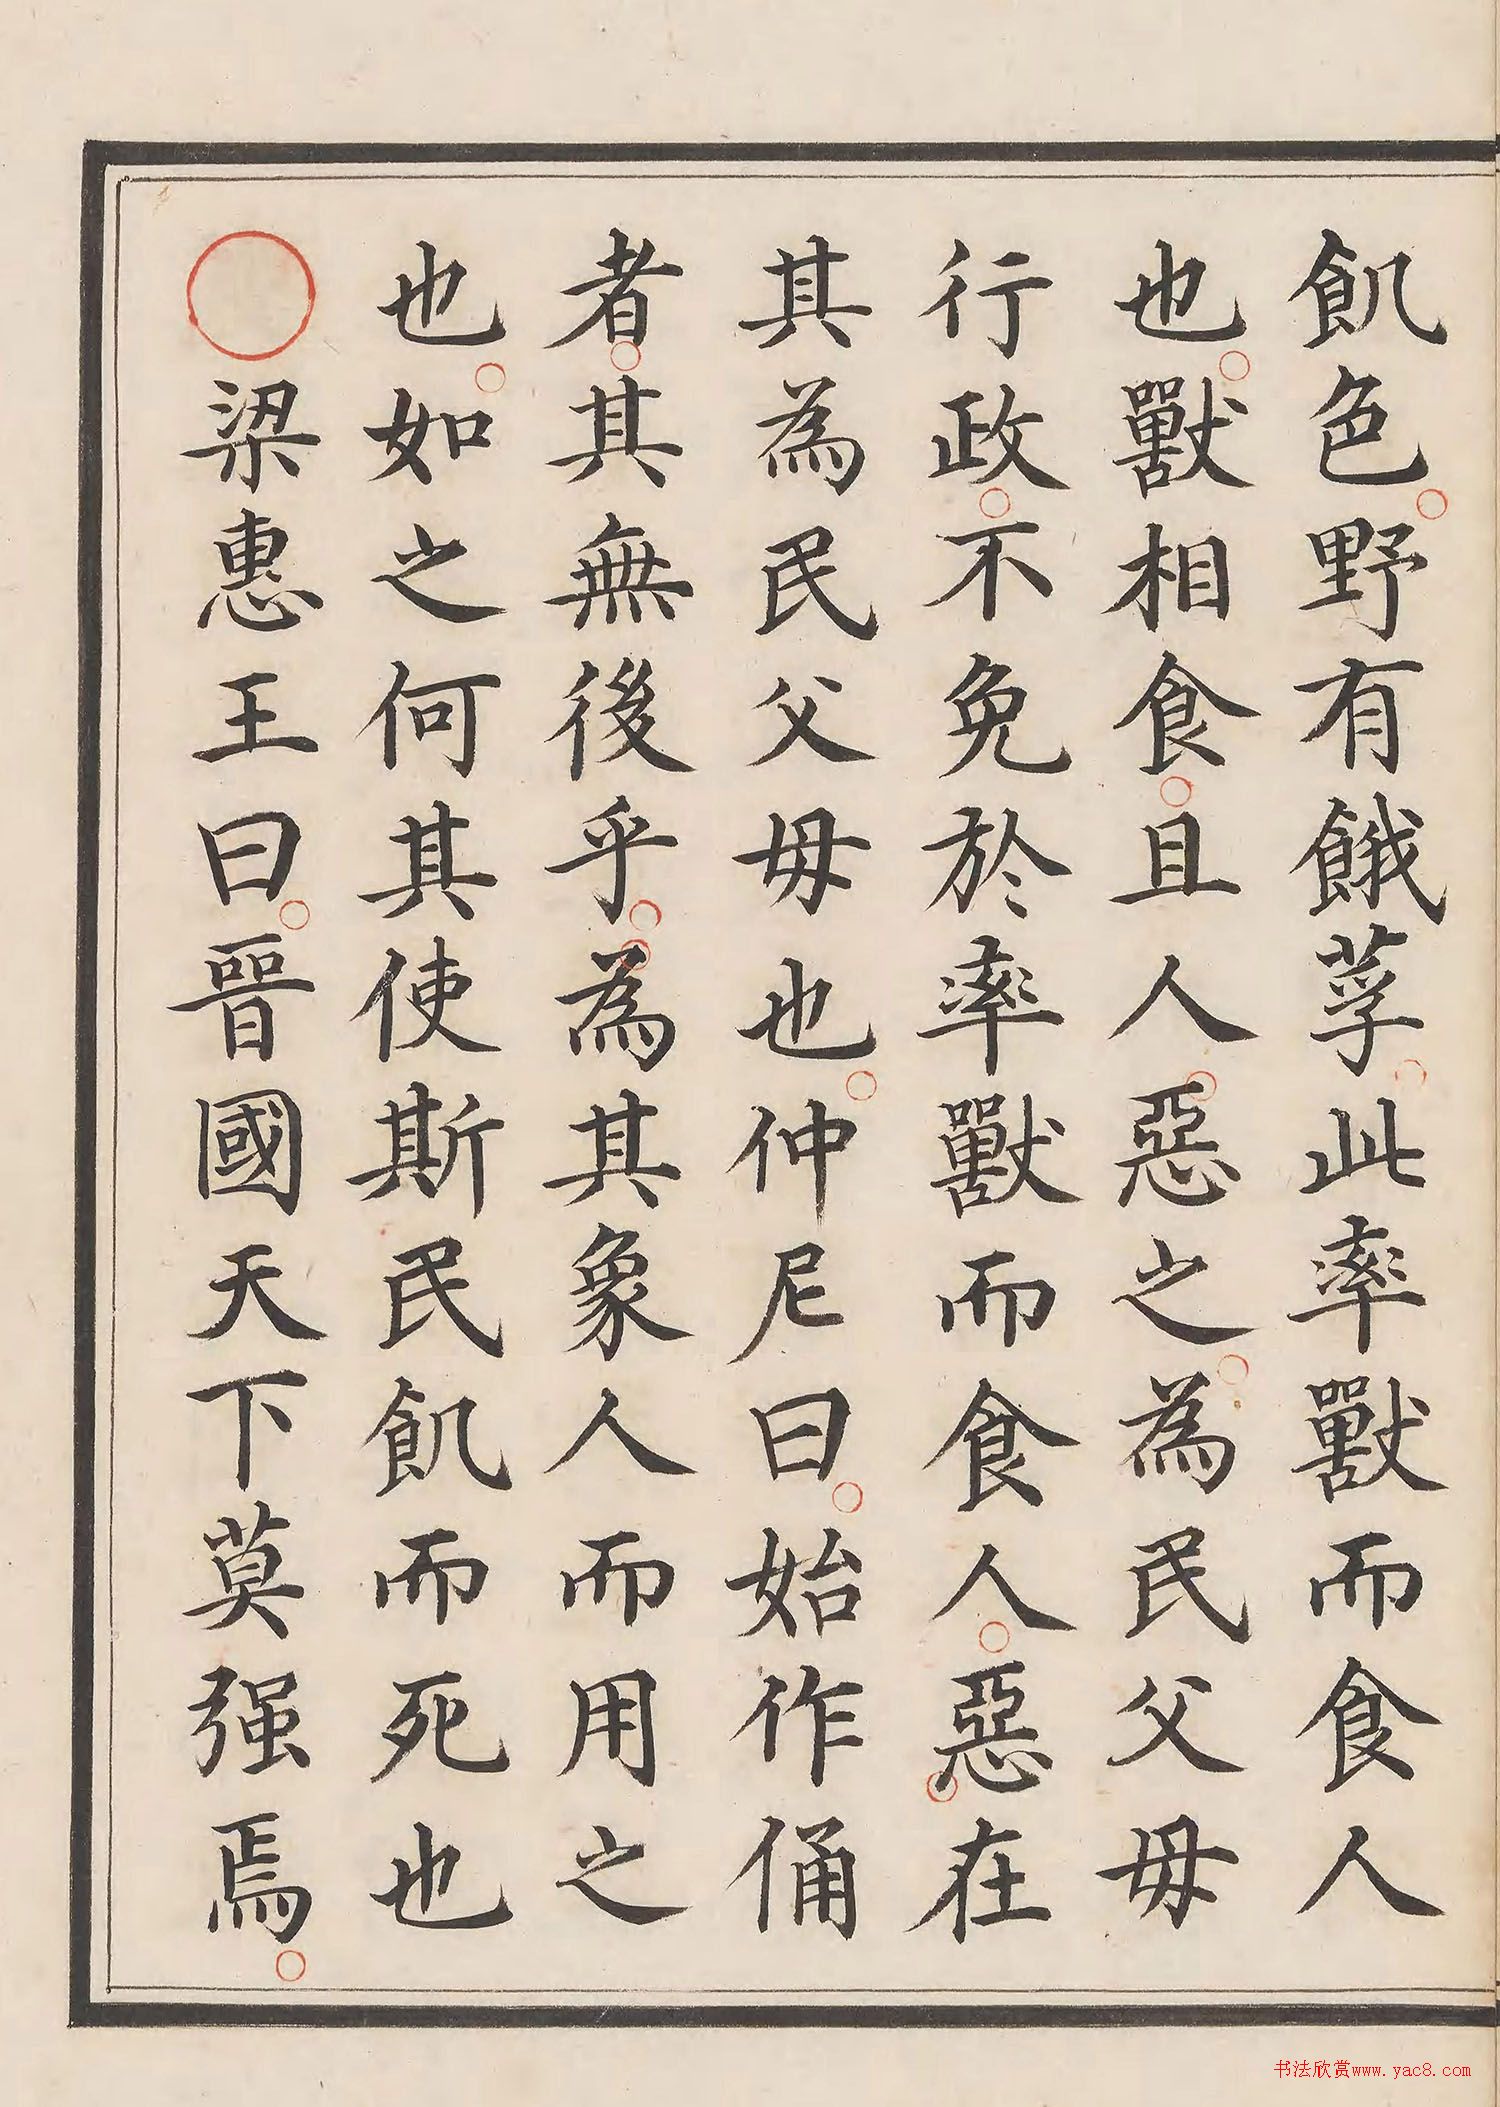 飢色野有餓莩此率獸而食人
也獸相食且人惡之為民父母
行政不免於率獸而食人惡在
其為民父母也仲尼曰始作俑
者其無後乎為其象人而用之
也如之何其使斯民飢而死也
梁惠王曰晉國天下莫强焉
书法欣赏www.yac8.com